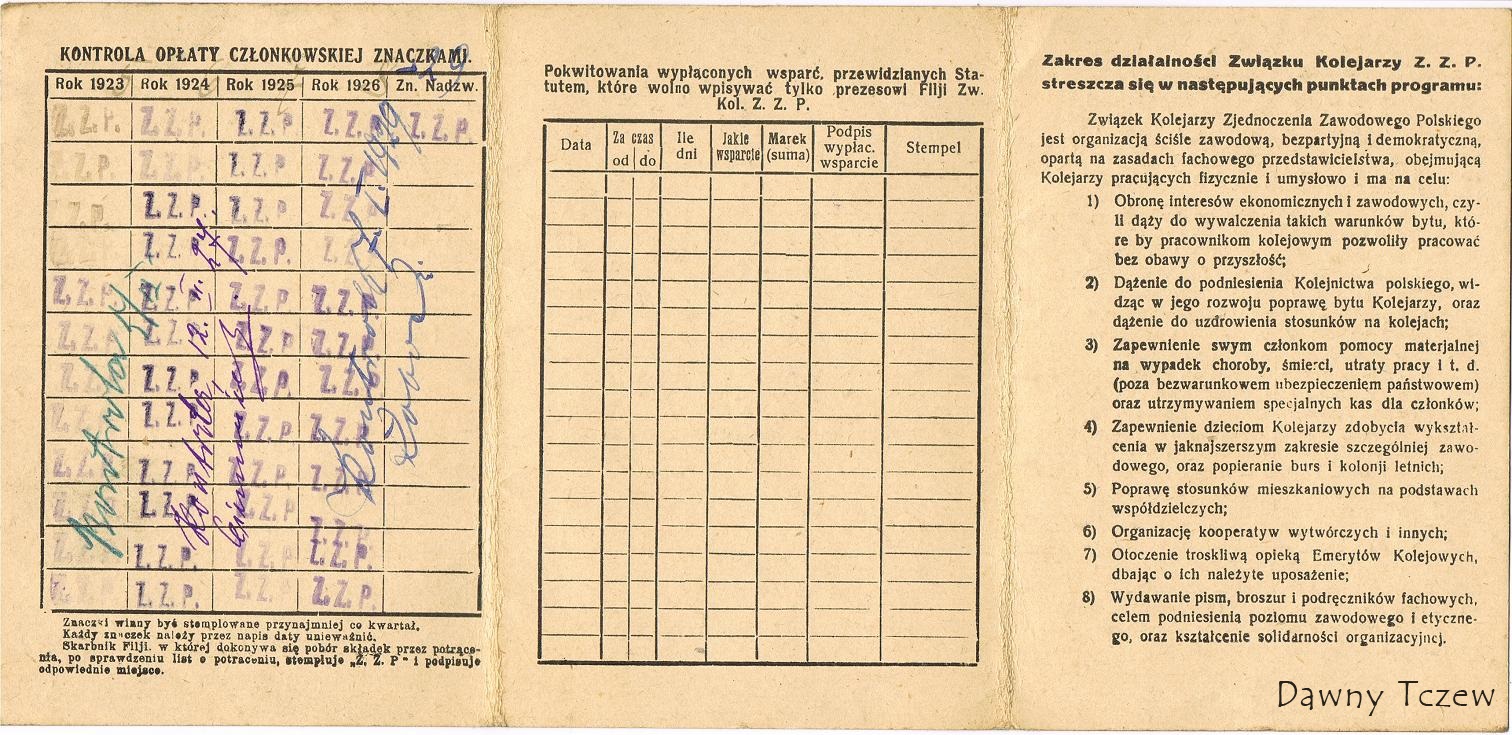 KONTROLA OPŁATY CZŁONKOWSKIEJ ZNACZKAMI.
Rok 1923 Rok 1924 Rok 1925 Rok 1926 Zn. Nadzw.
Z. Z. P. Z. Z. P. Z. Z. P. Z. Z. P. Z. Z. P.
Z. Z. P. Z. Z. P. Z. Z. P. Z. Z. P.
Z. Z. P. Z. Z. P. Z. Z. P. Z. Z. P.
Z. Z. P. Z. Z. P. Z. Z.
Z. Z. P. Z. Z. P. Z. Z. P. Z. Z. P.
Z. Z. P. Z. Z. P. Z. Z. P. Z. Z. P.
Z. Z. P. Z. Z. P. Z. Z. P. Z. Z. P.
Z. Z. P. Z. Z. P. Z. Z. P.
Z. Z. P. Z. Z. P. Z. Z. P. Z. Z. P.
Z. Z. P. Z. Z. P. Z. Z. P. Z. Z. P.
Z. Z. P. Z. Z. P. Z. Z. P. Z. Z. P.
Z. Z. P. Z. Z. P. Z. Z. P. Z. Z. P.
Kontrola
12. 4. 24.
Znaczki winny być stemplowane przynajmniej co kwartał.
Każdy znaczek należy przez napis daty unieważnić.
Skarbnik Filji. w której dokonywa się pobór składek przez potrące-
nia, po sprawdzeniu list o potraceniu, stempluje „Z. Z. P" i podpisuje
odpowiednie miejsce.
Pokwitowania wypłąconych wsparć, przewidzianych Sta-
tutem, które wolno wpisywać tylko prezesowi Filji Zw.
Kol. Z. Z. P.
Data
Za czas
od do
Ile
dni
Jakie
wsparcie
Marek
(suma)
Podpis
wypłac.
wsparcie
Stempel
Zakres działalności Związku Kolejarzy Z. Z. P.
streszcza się w następujących punktach programu:
Związek Kolejarzy Zjednoczenia Zawodowego Polskiego
jest organizacją ściśle zawodową, bezpartyjną i demokratyczną,
opartą na zasadach fachowego przedstawicielstwa, obejmującą
Kolejarzy pracujących fizycznie i umysłowo i ma na celu:
1) Obronę interesów ekonomicznych i zawodowych, czy-
li dąży do wywalczenia takich warunków bytu, któ-
re by pracownikom kolejowym pozwoliły pracować
bez obawy o przyszłość;
2) Dążenie do podniesienia Kolejnictwa polskiego, wi-
dząc w jego rozwoju poprawę bytu Kolejarzy, oraz
dążenie do uzdrowienia stosunków na kolejach;
3) Zapewnienie swym członkom pomocy materjalnej
na wypadek choroby, śmierci, utraty pracy i t. d.
(poza bezwarunkowem ubezpieczeniem państwowem)
oraz utrzymywaniem specjalnych kas dla członków;
4) Zapewnienie dzieciom Kolejarzy zdobycia wykształ-
cenia w jaknajszerszym zakresie szczególniej zawo-
dowego, oraz popieranie burs i kolonji letnich;
5) Poprawę stosunków mieszkaniowych na podstawach
współdzielczych;
6) Organizację kooperatyw wytwórczych i innych;
7) Otoczenie troskliwą opieką Emerytów Kolejowych,
dbając o ich należyte uposażenie;
8) Wydawanie pism, broszur i podręczników fachowych,
celem podniesienia poziomu zawodowego i etyczne-
go, oraz kształcenie solidarności organizacyjnej.
Dawny Tczew